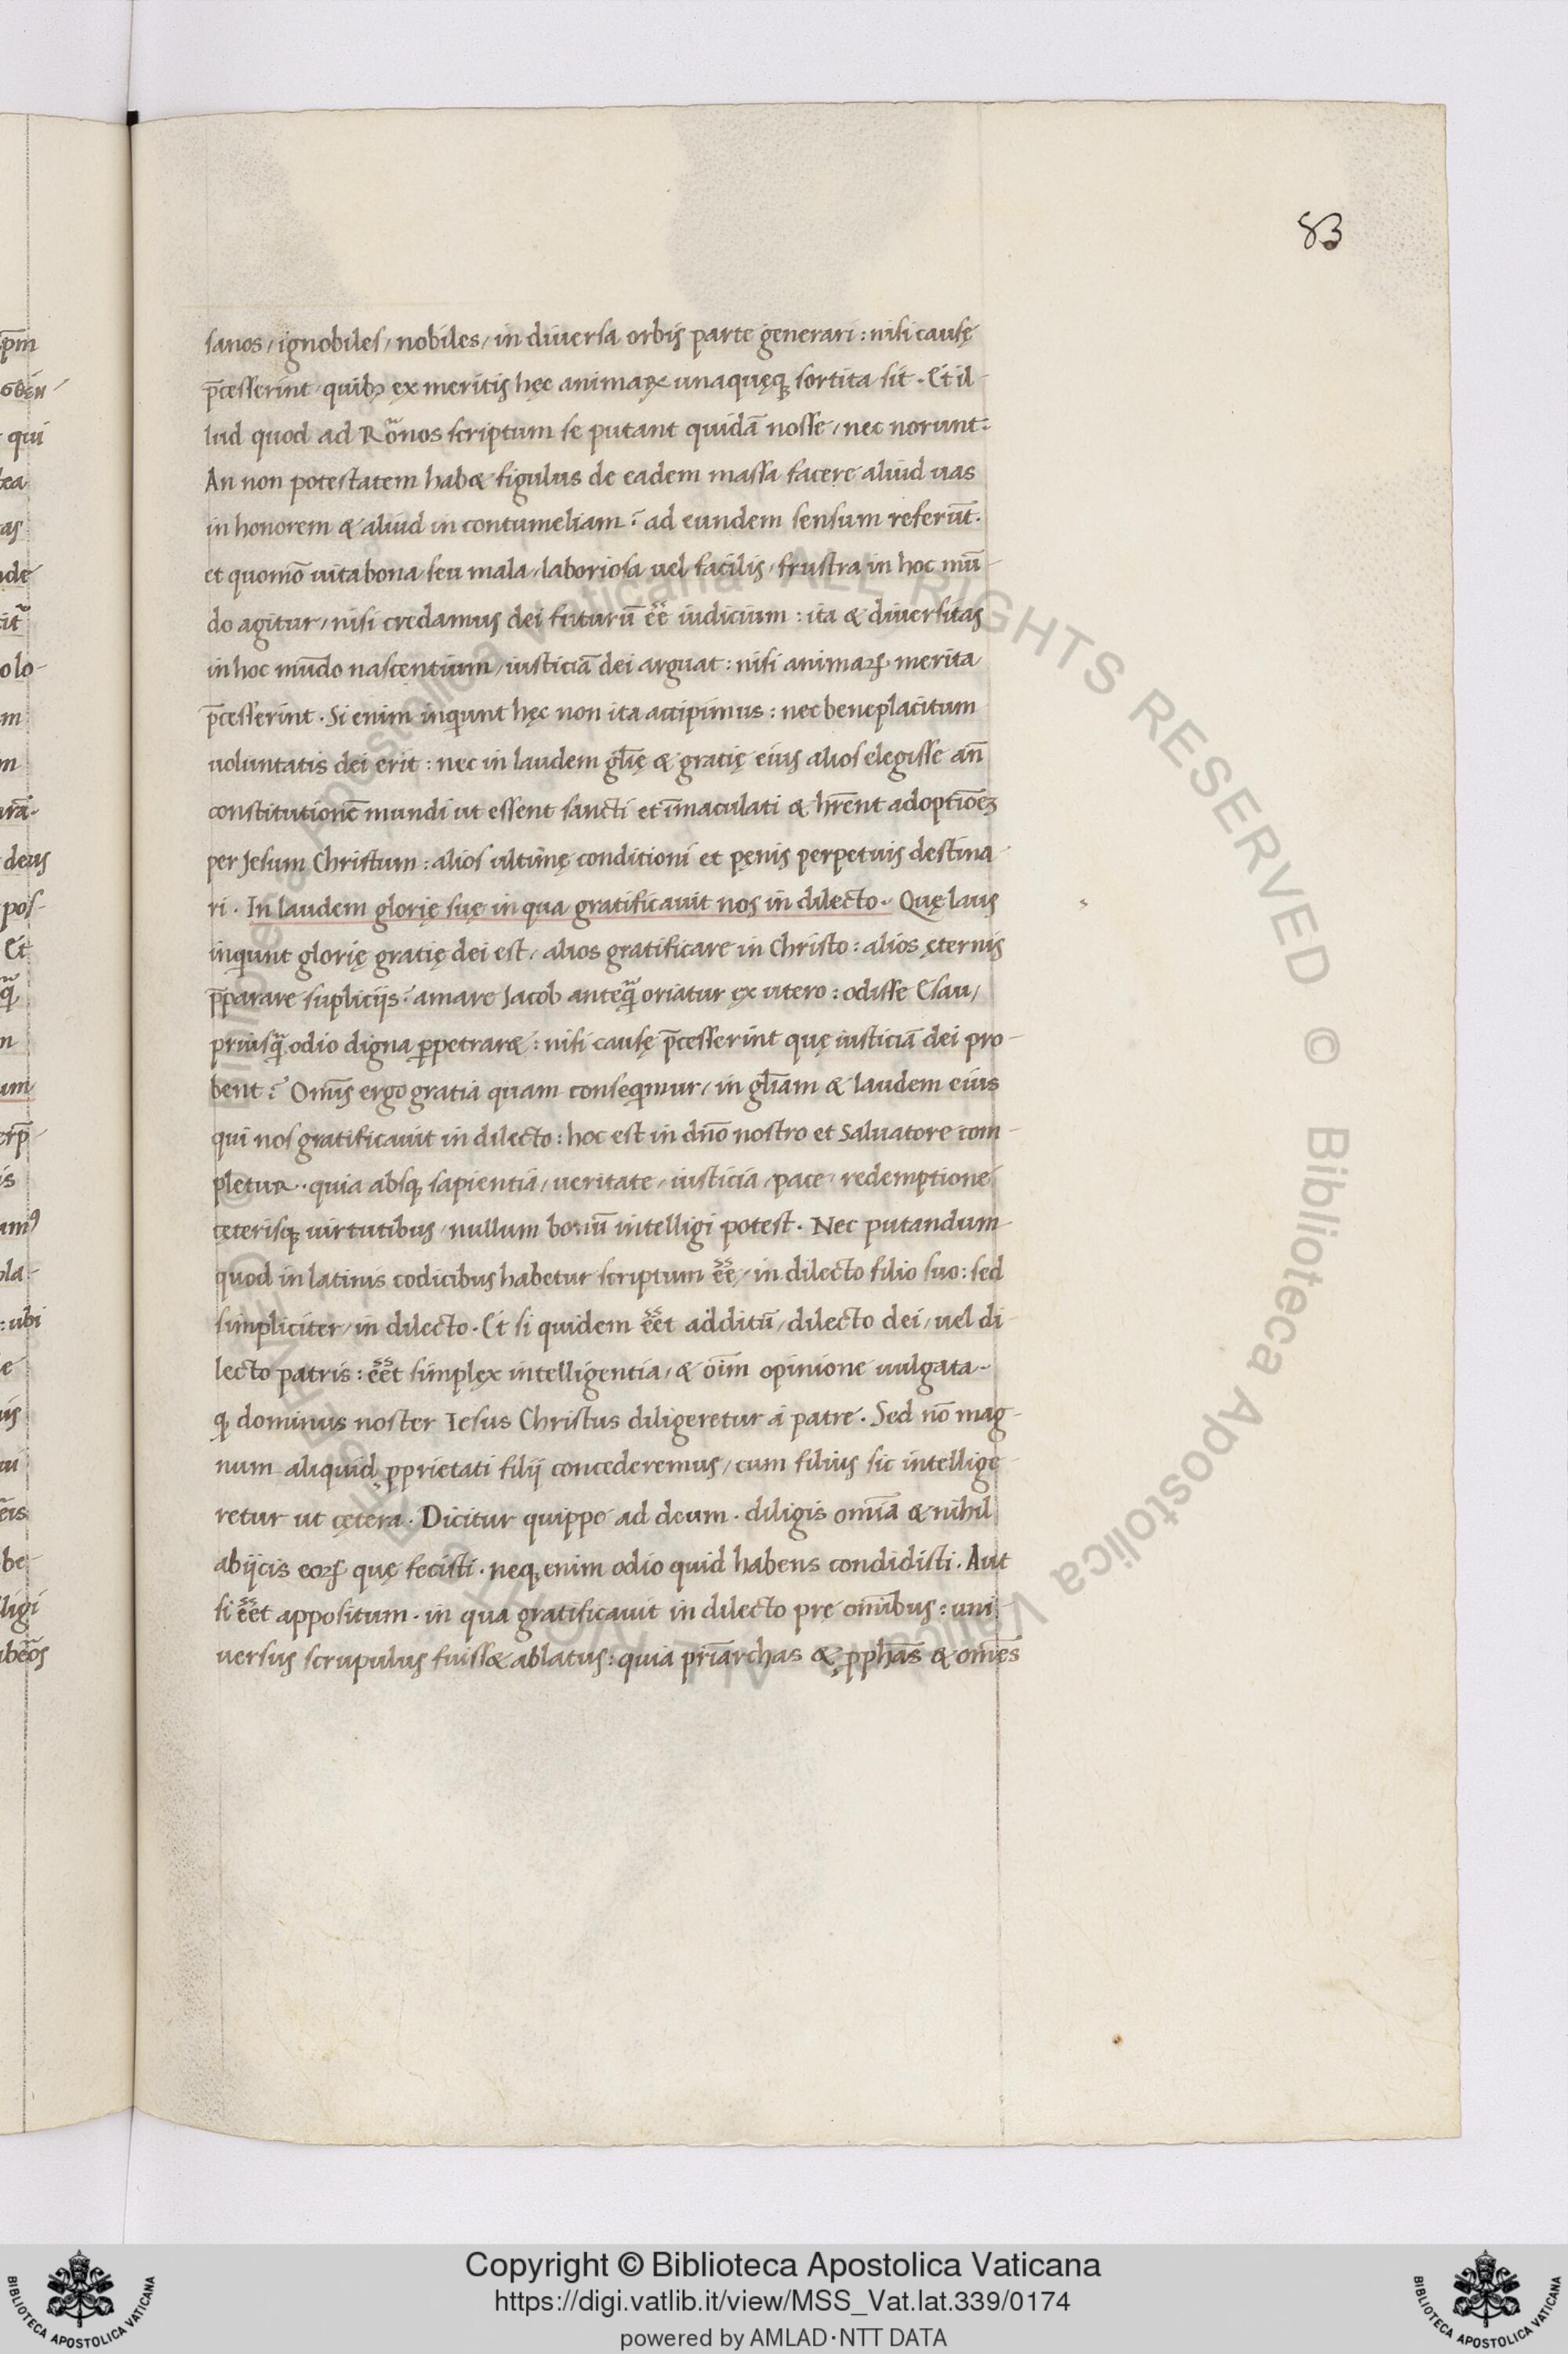 83
sanos, ignobiles, nobiles, in diuersa orbis parte generari: nisi causę
p̄cesserint, quibꝫ ex meritis hęc animaꝝ unaquęqꝫ sortita sit. Et il-
lud quod ad Rõnos scriptum se putant quidã nosse, nec norunt:
An non potestatem habet figulus de eadem massa facere aliud uas
in honorem & aliud in contumeliam? ad eundem sensum referūt.
et quomō uita bona, seu mala, laboriosa uel facilis, frustra in hoc mū-
do agitur, nisi credamus dei futurū eē̃ iudicium: ita & diuersitas
in hoc mūdo nascentium, iusticiā dei arguat: nisi animaꝝ merita
p̄cesserint. Si enim inqunt hęc non ita accipimus: nec beneplacitum
uoluntatis dei erit: nec in laudem gl̄ię & gratię eius alios elegisse an̄
constitutionē mundi ut essent sancti et īmaculati & hr̄ent adoptiōeꝫ
per Jesum Christum: alios ultimę conditioni et pęnis perpetuis destina-
ri. In laudem glorię suę in qua gratificauit nos in dilecto. Quę laus
inqunt glorię gratię dei est, alios gratificare in Christo: alios ęternis
p̄parare supliciis? amare Jacob anteq̃ oriatur ex utero: odisse Esau,
priusq̃ odio digna ꝑpetraret: nisi causę p̄cesserint quę iusticiā dei pro-
bent? Om̄is ergo gratia quam conseqmur, in gl̄iam & laudem eius
qui nos gratificauit in dilecto: hoc est in dn̄o nostro et Saluatore com-
pletur. quia absqꝫ sapientia, ueritate, iusticia, pace, redemptione
ceterisqꝫ uirtutibus, nullum bonū intelligi potest. Nec putandum
quod in latinis codicibus habetur scriptum eē̃, in dilecto filio suo: sed
simpliciter, in dilecto. Et si quidem eē̃t additū, dilecto dei, uel di-
lecto patris: eē̃t simplex intelligentia, & oīm opinione uulgata.
ꝙ dominus noster Iesus Christus diligeretur a patre. Sed nō mag-
num aliquid ꝓprietati filij concederemus, cum filius sic intellige-
retur ut cętera. Dicitur quippe ad deum. diligis om̄ia & nihil
abijcis eoꝝ quę fecisti. neqꝫ enim odio quid habens condidisti. Aut
si eē̃t appositum. in qua gratificauit in dilecto prę om̄ibus: uni-
uersus scrupulus fuisset ablatus: quia pr̄iarchas & ꝓphās & om̄es
Copyright © Biblioteca Apostolica Vaticana
https://digi.vatlib.it/view/MSS_Vat.lat.339/0174
powered by AMLAD·NTT DATA